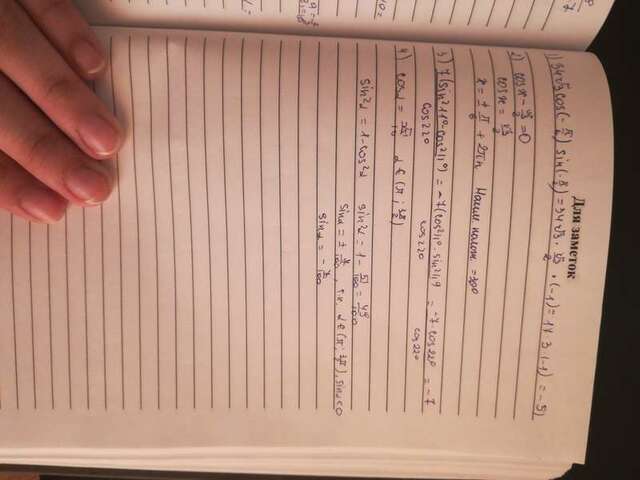 Для заметок
1) 34√3 cos(-π/6) sin(-π/2) = 34√3 · √3/2 · (-1) = 17·3·(-1) = -51
2) cos x - √3/2 = 0
cos x = √3/2
x = ±π/6 + 2πn Наим. полож. = 30°
3) 7(sin²11° - cos²11°) = -7(cos²11° - sin²11°) = -7 cos22° = -7
cos22° cos22° cos22°
4) α ∈ (π; 3π/2)
sin²α = 1 - cos²α sin²α = 1 - 51/100 = 49/100
α ∈ (π; 3π/2), sinα < 0